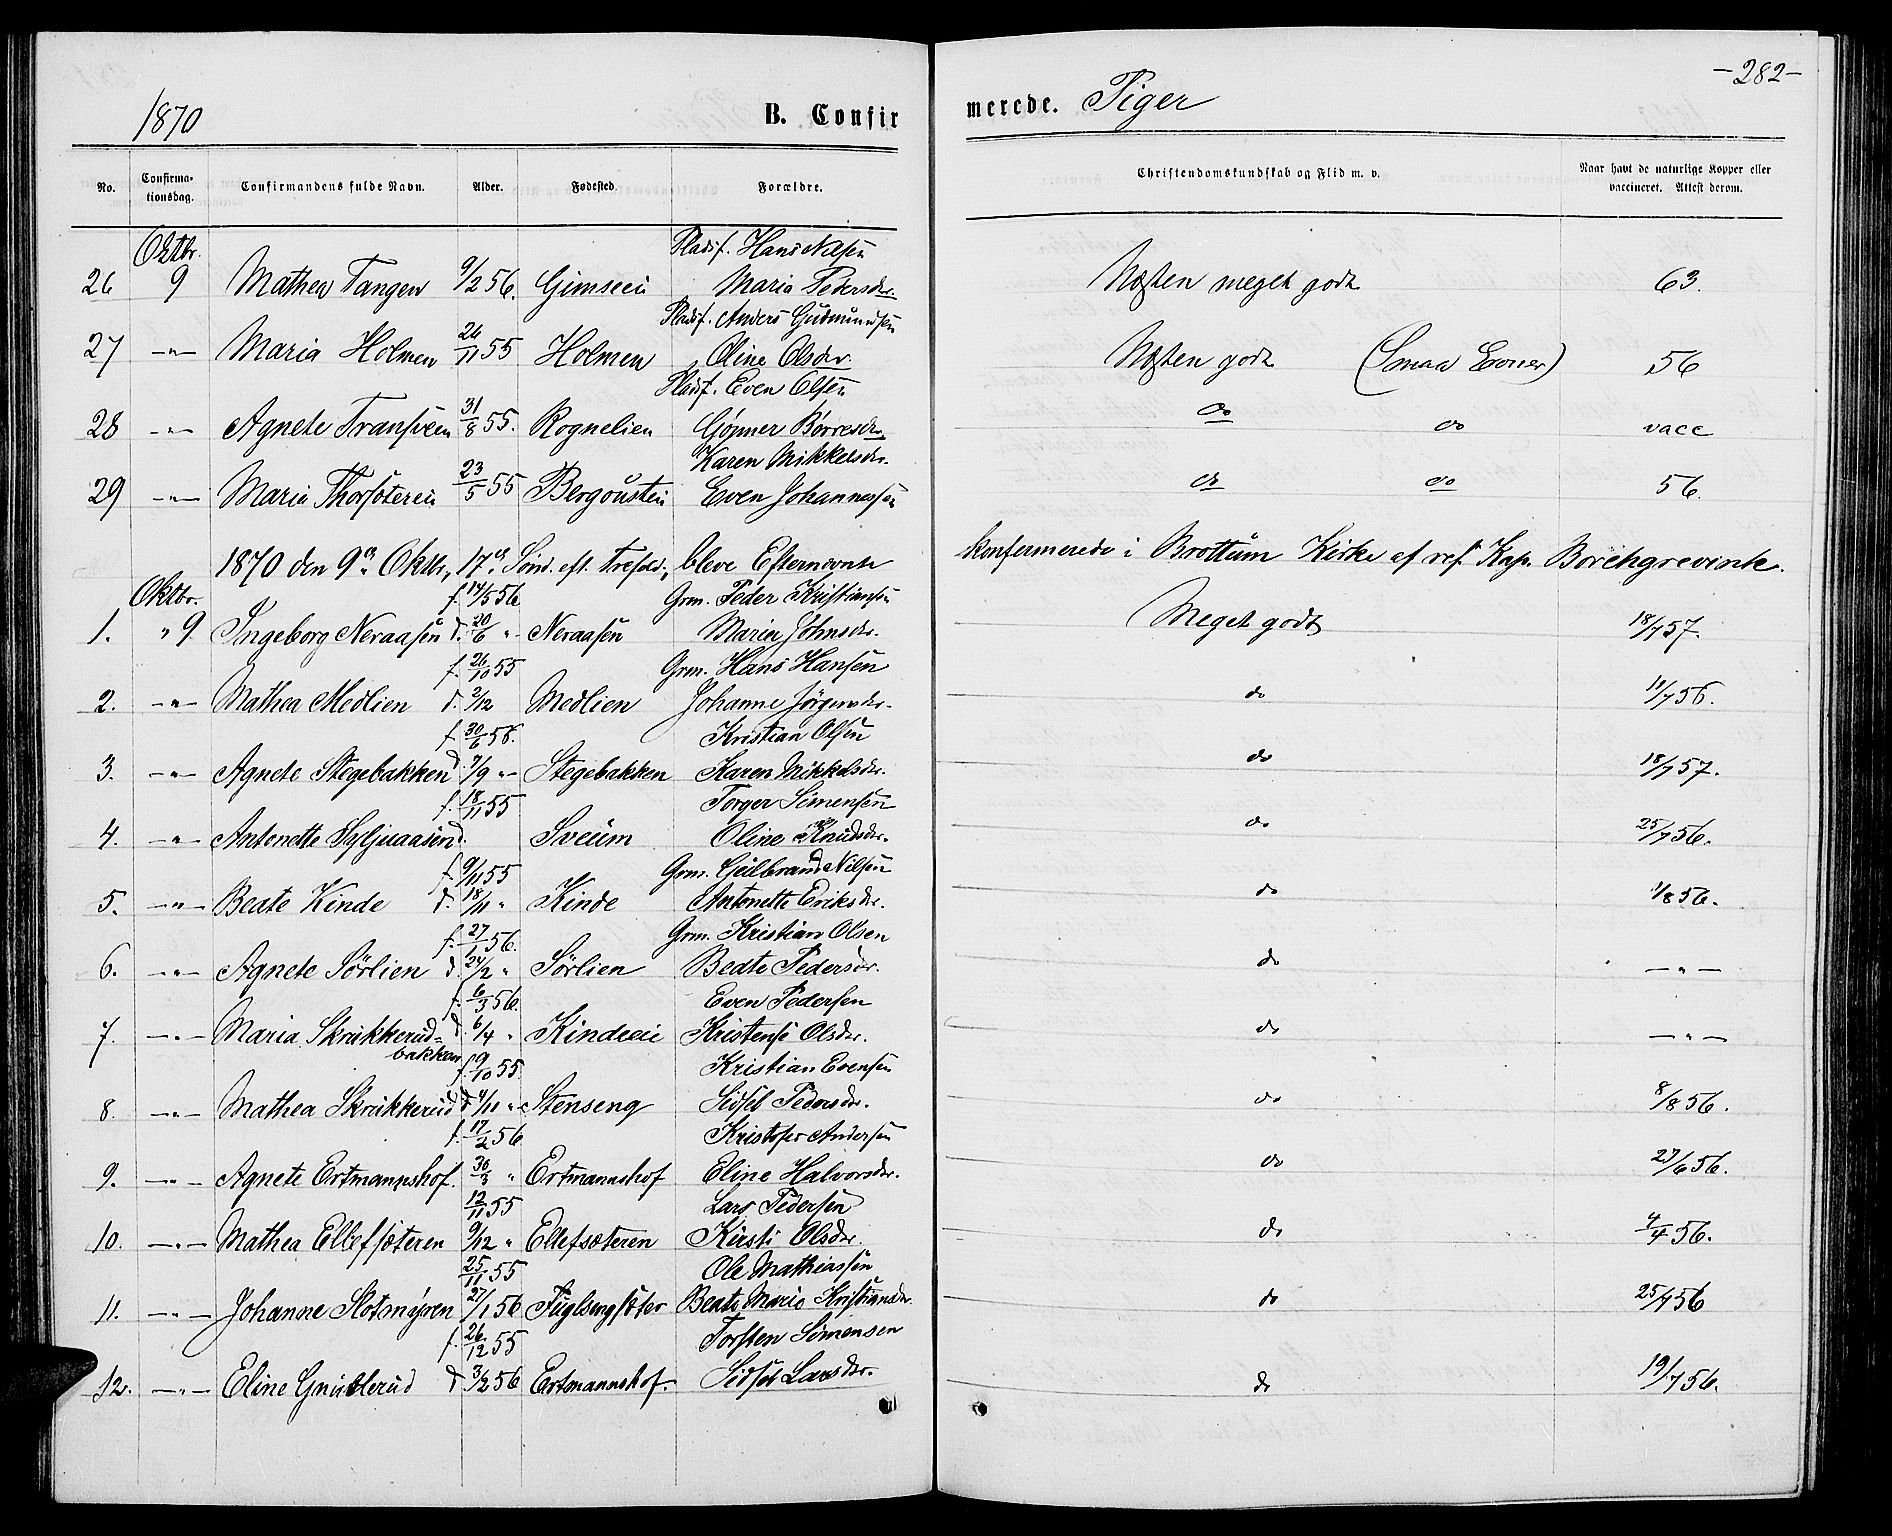 -282-
1870 B. Confirmerede. Piger
No. Confirmationsdag. Confirmandens fulde Navn. Alder. Fødested. Forældre. Christendomskundskab og Flid m. v. Naar havt de naturlige Kopper eller vaccineret. Attest derom.
Oktbr. Pladsf. Hans Nilsen
26 9 Mathea Tangen 9/2 56. Gimseeie Maria Pedersdr. Næsten meget godt 63.
Pladsf. Anders Gudmundsen
27 -"- Maria Holmen 26/11 55 Holmen Oline Olsdr. Næsten godt (Smaa Evner) 56
Pladsf. Even Olsen
28 -"- Agnete 31/8 55. Rognelien Børresdr. do do vacc
Karen Mikkelsdr.
29 -"- Maria 23/5 55 Even Johannessen do do 56.
1870 den 9de Oktbr, 17de Sönd. eft. Trefold., bleve Efternævnte konfirmerede i Brottum Kirke af res. Kap. Borchgrevink.
Oktbr. f. 14/5 56 Grm. Peder Kristiansen
1. " 9 Ingeborg Neraasen d. 20/6 " Neraasen Marin Johnsdr. Meget godt 18/7 57.
f. 26/10 55 Grm. Hans Hansen
2. -"- Mathea Medlien d. 2/12 Medlien Johanne Jörgensdr. do 19/7 56.
f. 30/6 56. Kristian Olsen
3. -"- Agnete Stegebakken d. 7/9 " Stegebakken Karen Mikkelsdr. do 18/7 57.
f. 18/11 55 Torger Simensen
4. -"- Antonette Syljuaasen d. Sveum Oline Knudsdr. do 25/7 56.
f. 9/11 55 Grm. Gulbrand Nilsen
5. -"- Beate Kinde d. 18/11 " Kinde Antonette Eriksdr. do 1/8 56.
f. 27/1 56. Grm. Kristian Olsen
6. -"- Agnete Sörlien d. 24/2 " Sörlien Beate Pedersdr. do -"-
f. 6/3 56. Even Pedersen
7. -"- Maria Skrukkerud= d. 6/4 " Kindeeie Kristense Olsdr. do -"-
bakken f. 9/10 55 Kristian Evensen
8. -"- Mathea Skrukkerud d. 4/11 " Stenseng Sidsel Pedersdr. do 8/8 56.
f. 17/2 56 Kristofer Andersen
9. -"- Agnete Ertmannshof. 30/3 " Ertmannshof Eline Halvorsdr. do 27/6 56.
12/11 55 Lars Pedersen
10. -"- Mathea Ellefsæteren 9/12 " Ellefsæteren Kirsti Olsdr. do 4/4 56.
25/11 55 Ole Mathiassen
11. -"- Johanne Slotmyren 27/1 56 Fuglsengsæter Beate Marie Kristiansdr. do 25/7 56
f. 26/12 55 Torsten Simensen
12. -"- Eline d. 3/2 56 Ertmannshof. Sidsel Larsdr. do 19/7 56.